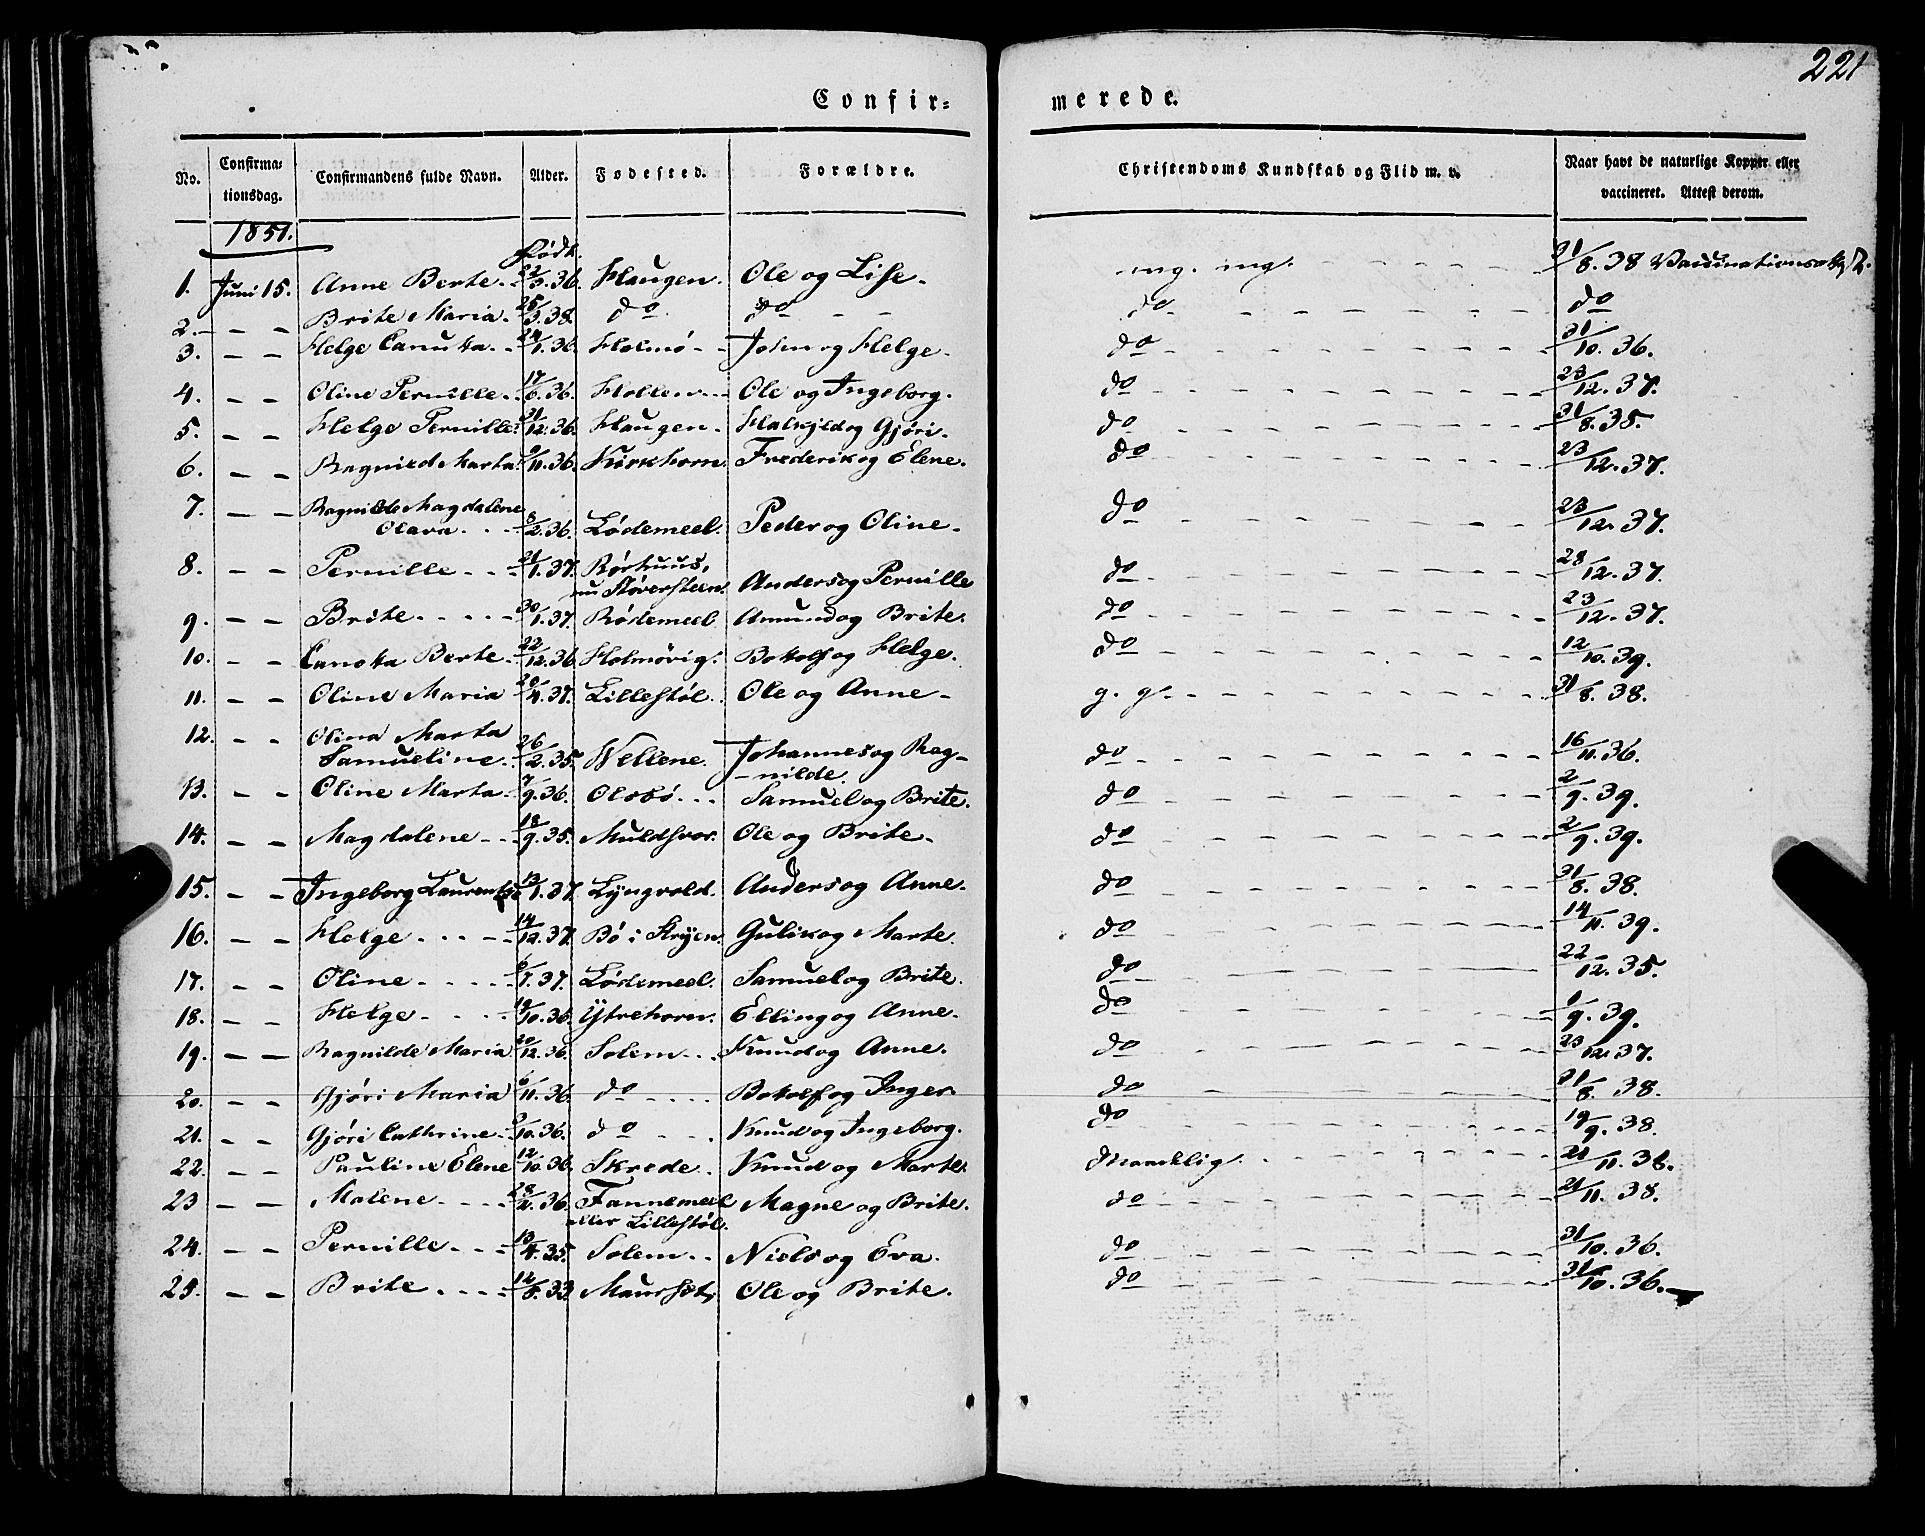 221
Confir= merede.
No. Confirma=tionsdag. Confirmandens fulde Navn. Alder. Fødested. Forældre. Christendoms Kundskab og Flid m. v. Naar havt de naturlige Kopper eller vaccineret. Attest derom.
1851. Født.
1. Juni 15. Anne Berte 36. Haugen. Ole og Lisse. mg. mg. 31/8. 38
2. Brite Maria 25/3.38. do do do do
3. Helge Canutta 24/1.36. Holmø John og Helge. do 31/10. 36.
4. Oline Pernille 17/6.36. Hollen Ole og Ingeborg. do 23/12. 37.
5. Helge Pernille 21/12.36. Haugen og Gjøri. do 31/8. 38.
6. Ragnild Marta 11.36. Kirkhorn. Frederik og Elene. do 23/12. 37.
7. Ragnilde Magdalene
Olava 8/2.36. Lødemeel. Peder og Oline. do 23/12. 37.
8. Pernille 21/1.37. Rørhuus,
nu Anders og Pernille do 23/12. 37.
9. Brite 30/1.37. Rødemeel Amund og Brite. do 23/12. 37.
10. Canutta Berte 22/12.36 Holmøvig. Botolf og Helge. do 12/10. 39.
11. Oline Maria 4.37. Lillestøl. Ole og Anne g. g. 31/8. 38.
12. Olina Marta
Samueline 26/2.35. Wellene. Johannes og Rag-
nilde. do 16/11. 36.
13. Oline Marta 7/9.36. Olsbø Samuel og Brite. do 2/9. 39.
14. Magdalene 18/9.35. Muldsvor. Ole og Brite do 2/9. 39.
15. Ingeborg 13/1.37. Lyngvold. Anders og Anne. do 31/8. 38.
16. Helge 14/12.37. Bø i Stryen. Gulik og Marte. do 14/11. 39.
17. Oline 37. Lødemeel. Samuel og Brite. do 22/12. 35.
18. Helge 19/10.36. Ytrehorn. Elling og Anne. do 9. 39.
19. Ragnilde Maria 20/12.36. Solem Knud og Anne. do 23/12. 37.
20. Gjøri Maria 11.36. do Botolf og Inger. do 31/8. 38.
21. Gjøri Cathrine 10.36. do Knud og Ingeborg. do 19/9. 38.
22. Pauline Elene 12/10.36 Skrede Knud og Marte. Maadelig. 21/11. 38.
23 Malene 28/11.36. Fannemeel
eller Lillestøl. Magne og Brite. do 21/11. 38.
24. Pernille 13/4.35. Solem Niels og Eva. do 31/10. 36.
25. Brite 12/8.33 Maurset. Ole og Brite. do 31/10. 36.